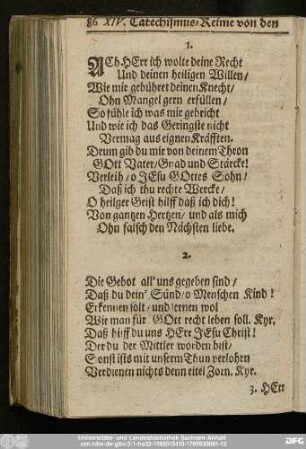 86 XIV. Catechismus-Reime von den
1.
ACh HErr ich wolte deine Recht
Und deinen heiligen Willen /
Wie mir gebühret deinen Knecht /
Ohn Mangel gern erfüllen /
So fühle ich was mir gebricht
Und wie ich das Geringste nicht
Vermag aus eignen Kräfften.
Drum gib du mir von deinem Thron
GOtt Vater / Gnad und Stärcke!
Verleih / o JEsu GOttes Sohn /
Daß ich thu rechte Wercke /
O heilger Geist hilff daß ich dich!
Von gantzen Hertzen / und als mich
Ohn falsch den Nächsten liebe.
2.
Die Gebot all' uns gegeben sind /
Daß du dein' Sünd / o Menschen Kind!
Erkennen solt / und lernen wol
Wie man für GOtt recht leben soll. Kyr.
Daß hilff du uns HErr JEsu Christ!
Der du der Mittler worden bist /
Sonst ists mit unserm Thun verlohrn
Verdienen nichts denn eitel Zorn. Kyr.
3. HErr
Universitäts- und Landesbibliothek Sachsen-Anhalt
DFG